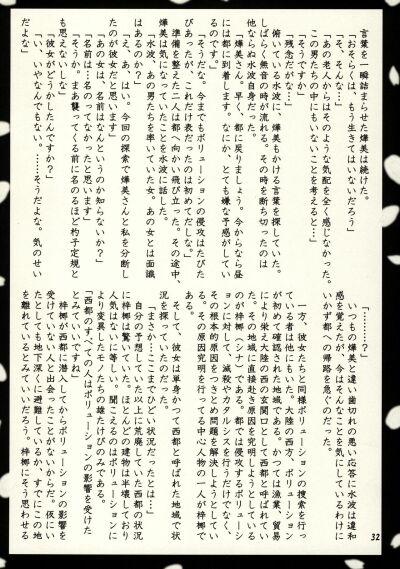 言葉を一瞬詰まらせた爆美は続けた。
「おそらくは、もう生きてはいないだろう」
「そ、そんな…」
「あの老人からはそのような気配を全く感じなかった。
この男たちの中にもいないことを考えると…」
「そうですか」
「残念だがな…」
俯いている水波に、爆美もかける言葉を探していた。
しばらく無音の時が流れる。その時を断ち切ったのは
他ならぬ水波自身だった。
「爆美さん。早く、都に戻りましょう。今からなら昼
には都に到着します。なにか、とても嫌な予感がしてい
るのです。」
「そうだな。今までもボリューションの侵攻はたびた
びあったが、これだけ表だったのは初めてだしな。」
準備を整えた二人は都へ向かい飛び立った。その途中、
爆美は気になっていたことを水波に話した。
「水波、あの男たちを率いていた女。あの女とは面識
はあるのか？」
「え、あ、はい。今回の探索で爆美さんと私を分断し
たのが彼女だと思います」
「あの女は、名前はなんというのか知らないか？」
「名前は…名のってなかったと思います」
「そうか。まあ襲ってくる前に名のるほど杓子定規と
も思えないしな」
「彼女がどうかしたんですか？」
「い、いやなんでもない。……そうだよな。気のせい
だよな」
「？………？」
いつもの爆美と違い歯切れの悪い応答に水波は違和
感を覚えたが、今はそんなことを気にしているわけに
いかず都への帰路を急ぐのだった。
一方、彼女たちと同様ボリューションの捜索を行っ
ている者は他にもいた。大陸の西方、ボリューション
が初めて確認された地域である。かつては漁業、貿易
により栄え大陸の西の玄関口として西都と呼ばれてい
た。その地域に直接赴き原因を究明しようとしている
のが梓梛（シナ）である。都では侵攻するボリューシ
ョンに対して、滅殺やカタルシスを行うだけでなく、
その根本的原因をつきとめ問題を解決しようとしてい
る。その原因究明を行ってる中心人物の一人が梓梛で
ある。
そして、彼女は単身かつて西都と呼ばれた地域で状
況を探っていたのだった。
「まさか…ここまでひどい状況だったとは…」
自分の予想していた以上に荒廃していた西都の状況
に梓梛は驚いていた。ほとんどの建物は半壊しており
人気はないに等しい。聞こえるのはボリューションに
より変異したモノたちの雄たけびのみである。
「西都のすべての人はボリューションの影響を受けた
とみていいですね」
梓梛が西都に潜入してからボリューションの影響を
受けていない人と出会ったことがないからだ。仮にい
たとしても地下深くに避難しているか、すでにこの地
を離れているとみていいだろう。梓梛にそう思わせる
32